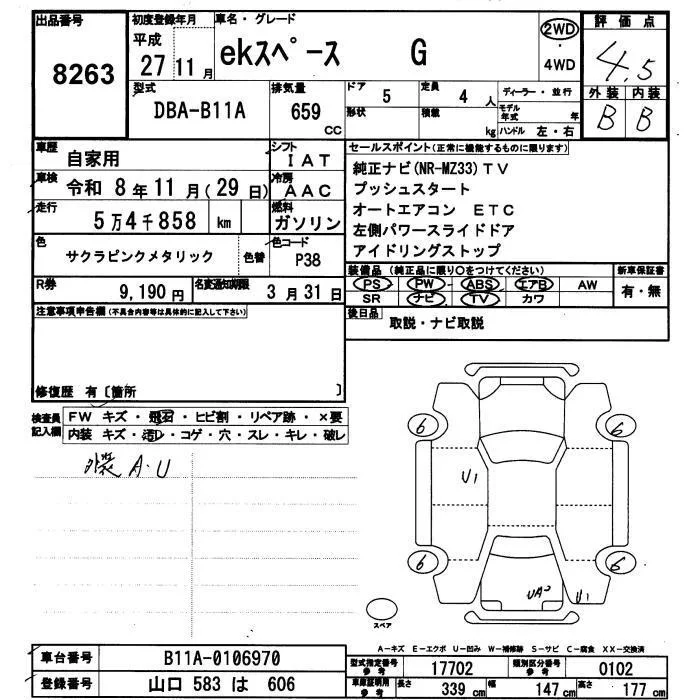 出品番号 初度登録年月 車名・グレード 評価点
8263 平成 27 11 月 ekスペース G 2WD ・ 4WD 4.5
型式 DBA-B11A 排気量 659 CC
ドア 5 定員 4 人 ディーラー・並行
形状 積載 kg モデル年式 年 ハンドル 左・右
外装 内装
B B
車歴 自家用 シフト IAT
車検 令和 8 年 11 月 ( 29 日 ) 冷房 AAC
走行 5 万 4 千 858 km 燃料 ガソリン
色 サクラピンクメタリック 色替 色コード P38
R券 9,190 円 名変通知期限 3 月 31 日
セールスポイント(正常に機能するものに限ります)
純正ナビ(NR-MZ33)TV
プッシュスタート
オートエアコン ETC
左側パワースライドドア
アイドリングストップ
装備品 (純正品に限り○をつけてください) 新車保証書
PS PW ABS エアB AW 有・無
SR ナビ TV カワ
後日品 取説・ナビ取説
注意事項申告欄(不具合内容等は具体的に記入して下さい)
修復歴 有〔箇所 〕
検査員記入欄 FW キズ・飛石・ヒビ割・リペア跡・×要
内装 キズ・汚レ・コゲ・穴・スレ・キレ・破レ
外装 A・U
6 6
U1
6 6
UA2 U1
スペア
A-キズ E-エクボ U-凹み W-補修跡 S-サビ C-腐食 XX-交換済
車台番号 B11A-0106970 型式指定番号 参考 17702 類別区分番号 参考 0102
登録番号 山口 583 は 606 車庫証明用 参考 長さ 339 cm 幅 147 cm 高さ 177 cm